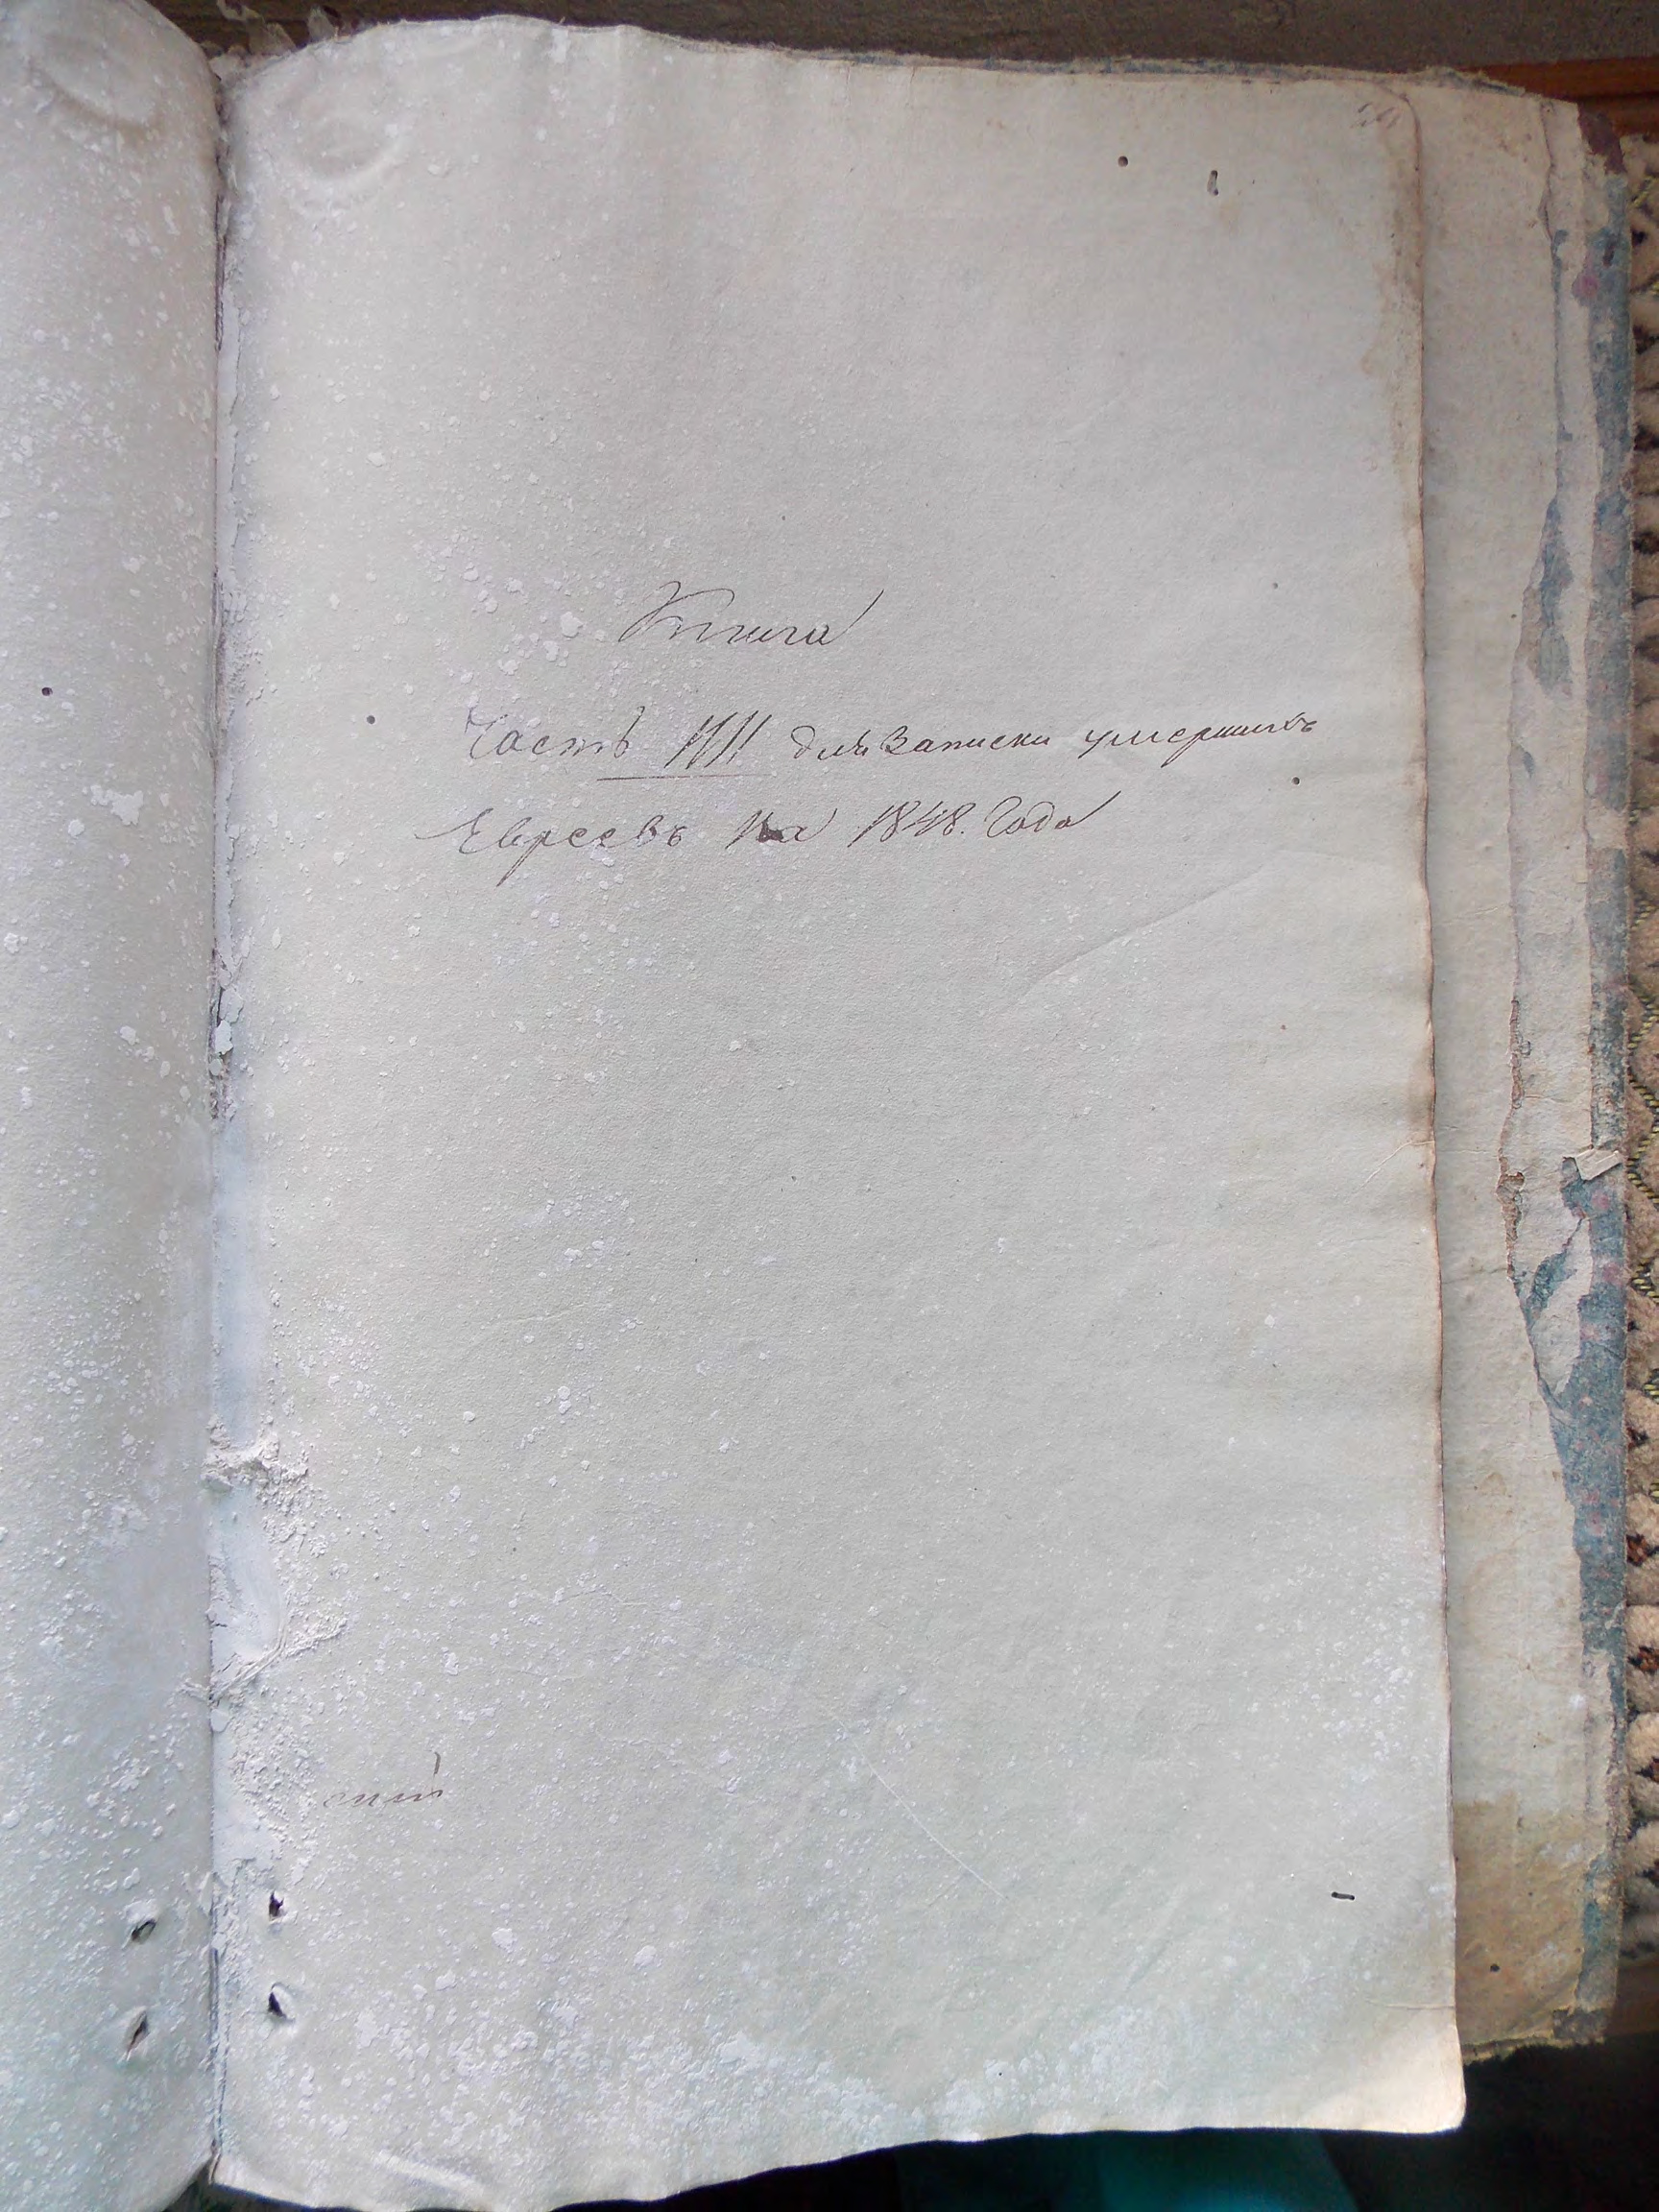 Книга
Часть III для записки умершихъ
Евреевъ на 1848. Года
ский